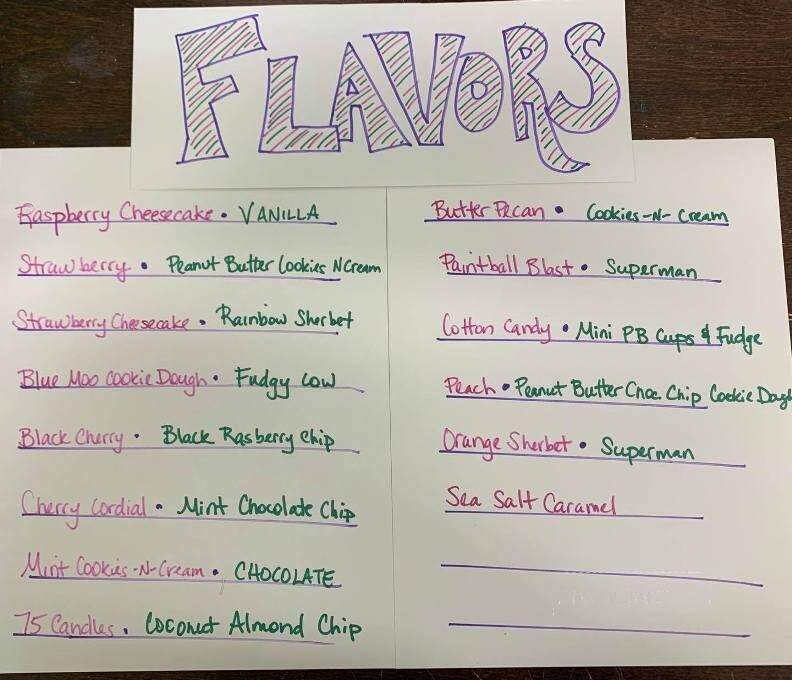 FLAVORS
Raspberry Cheesecake • VANILLA
Strawberry • Peanut Butter Cookies N Cream
Strawberry Cheesecake • Rainbow Sherbet
Blue Moo Cookie Dough • Fudgy Cow
Black Cherry • Black Rasberry Chip
Cherry Cordial • Mint Chocolate Chip
Mint Cookies-N-Cream • CHOCOLATE
75 Candles • Coconut Almond Chip
Butter Pecan • Cookies-N-Cream
Paintball Blast • Superman
Cotton Candy • Mini PB Cups & Fudge
Peach • Peanut Butter Choc. Chip Cookie Dough
Orange Sherbet • Superman
Sea Salt Caramel